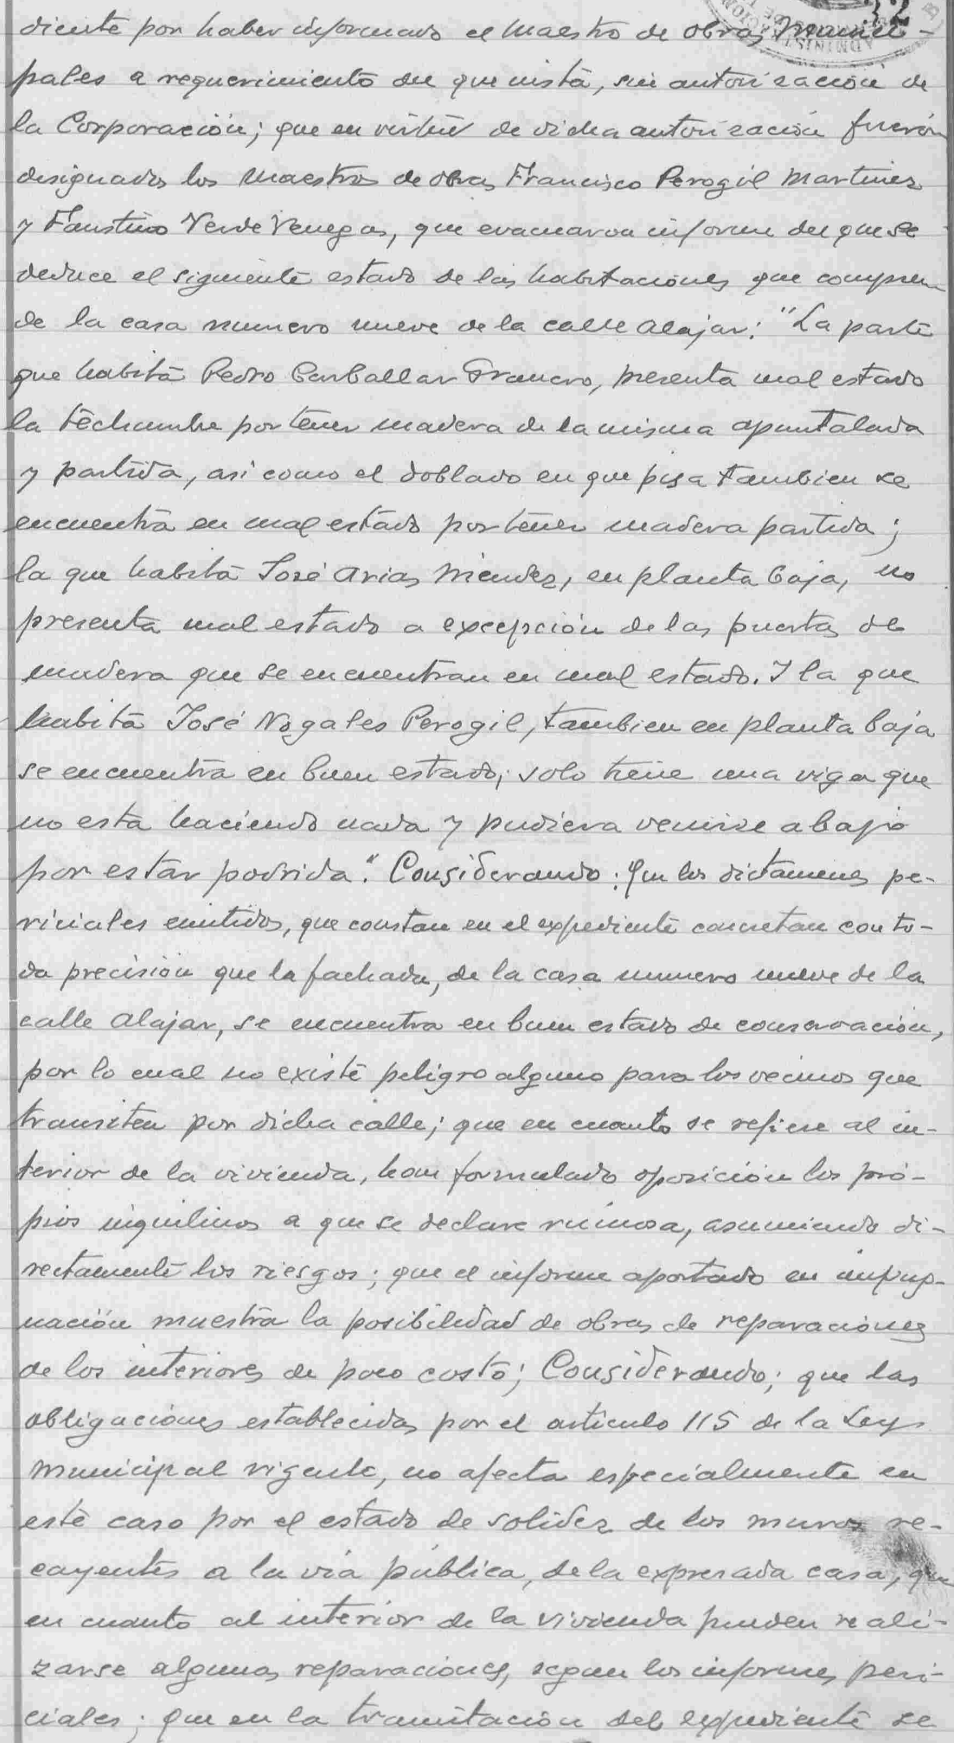 32
diente por haber informado el Maestro de obras munici-
pales a requerimiento del que insta, sin autorización de
la Corporación; que en virtud de dicha autorización fueron
designados los Maestros de obras Francisco Perogil Martinez
y Faustino Verde Venegas, que evacuaron informe del que se
deduce el siguiente estado de las habitaciones que compren-
de la casa numero nueve de la calle Alajar: "La parte
que habita Pedro Carballar Granero, presenta mal estado
la techumbre por tener madera de la misma apuntalada
y partida, asi como el doblado en que pisa tambien se
encuentra en mal estado por tener madera partida;
la que habita José Arias Méndez, en planta baja, no
presenta mal estado a excepción de las puertas de
madera que se encuentran en mal estado. Y la que
habita José Nogales Perogil, tambien en planta baja
se encuentra en buen estado, solo tiene una viga que
no esta haciendo nada y pudiera venirse abajo
por estar podrida". Considerando: Que los dictamenes pe-
riciales emitidos, que constan en el expediente concretan con to-
da precisión que la fachada, de la casa numero nueve de la
calle Alajar, se encuentra en buen estado de conservación,
por lo cual no existe peligro alguno para los vecinos que
transiten por dicha calle; que en cuanto se refiere al in-
terior de la vivienda, han formulado oposición los pro-
pios inquilinos a que se declare ruinosa, asumiendo di-
rectamente los riesgos; que el informe aportado en impug-
nación muestra la posibilidad de obras de reparaciones
de los interiores de poco costo; Considerando; que las
obligaciones establecidas por el articulo 115 de la Ley
Municipal vigente, no afecta especialmente en
este caso por el estado de solidez de los muros re-
cayentes a la via pública, de la expresada casa, que
en cuanto al interior de la vivienda pueden reali-
zarse algunas reparaciones, segun los informes peri-
ciales; que en la tramitación del expediente se